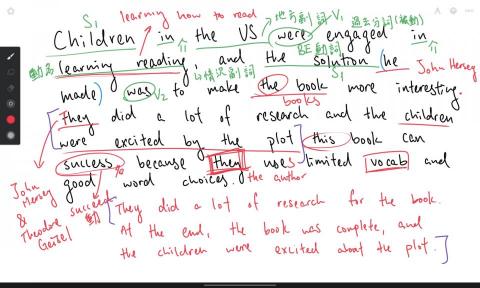 S1 learning how to read 地方副詞 V1 過去分詞(被動)
Children in the US were engaged in
介 BE動詞 介
動名 learning reading, and the solution (he John Hersey
情態副詞 S1
made) was to make the book more interesting.
V2 books
They did a lot of research and the children
were excited by the plot this book can
success because they uses limited vocab and
good word choices. the author
John
Hersey
&
Theodore
Geisel
succeed
動
They did a lot of research for the book.
At the end, the book was complete, and
the children were excited about the plot.